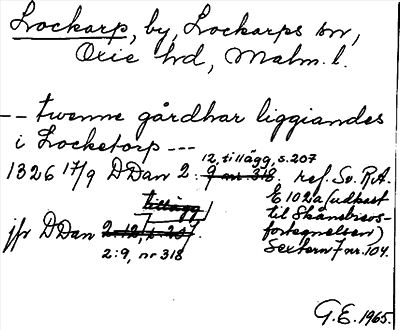 Lockarp, by, Lockarps sn,
Oxie hd, Malm. l.
-- twenne gårdhar liggiandes
i Locketorp ---
12, tillägg, s. 207
1326 17/9 DDan 2: 9 nr 318. ref. Sv. R.A.
E 102a (udkast
till Skånebrevs-
fortegnelsen)
Sextern 7 nr. 104.
tillägg
jfr DDan 2:12, s. 207.
2:9, nr 318
G.E. 1965.